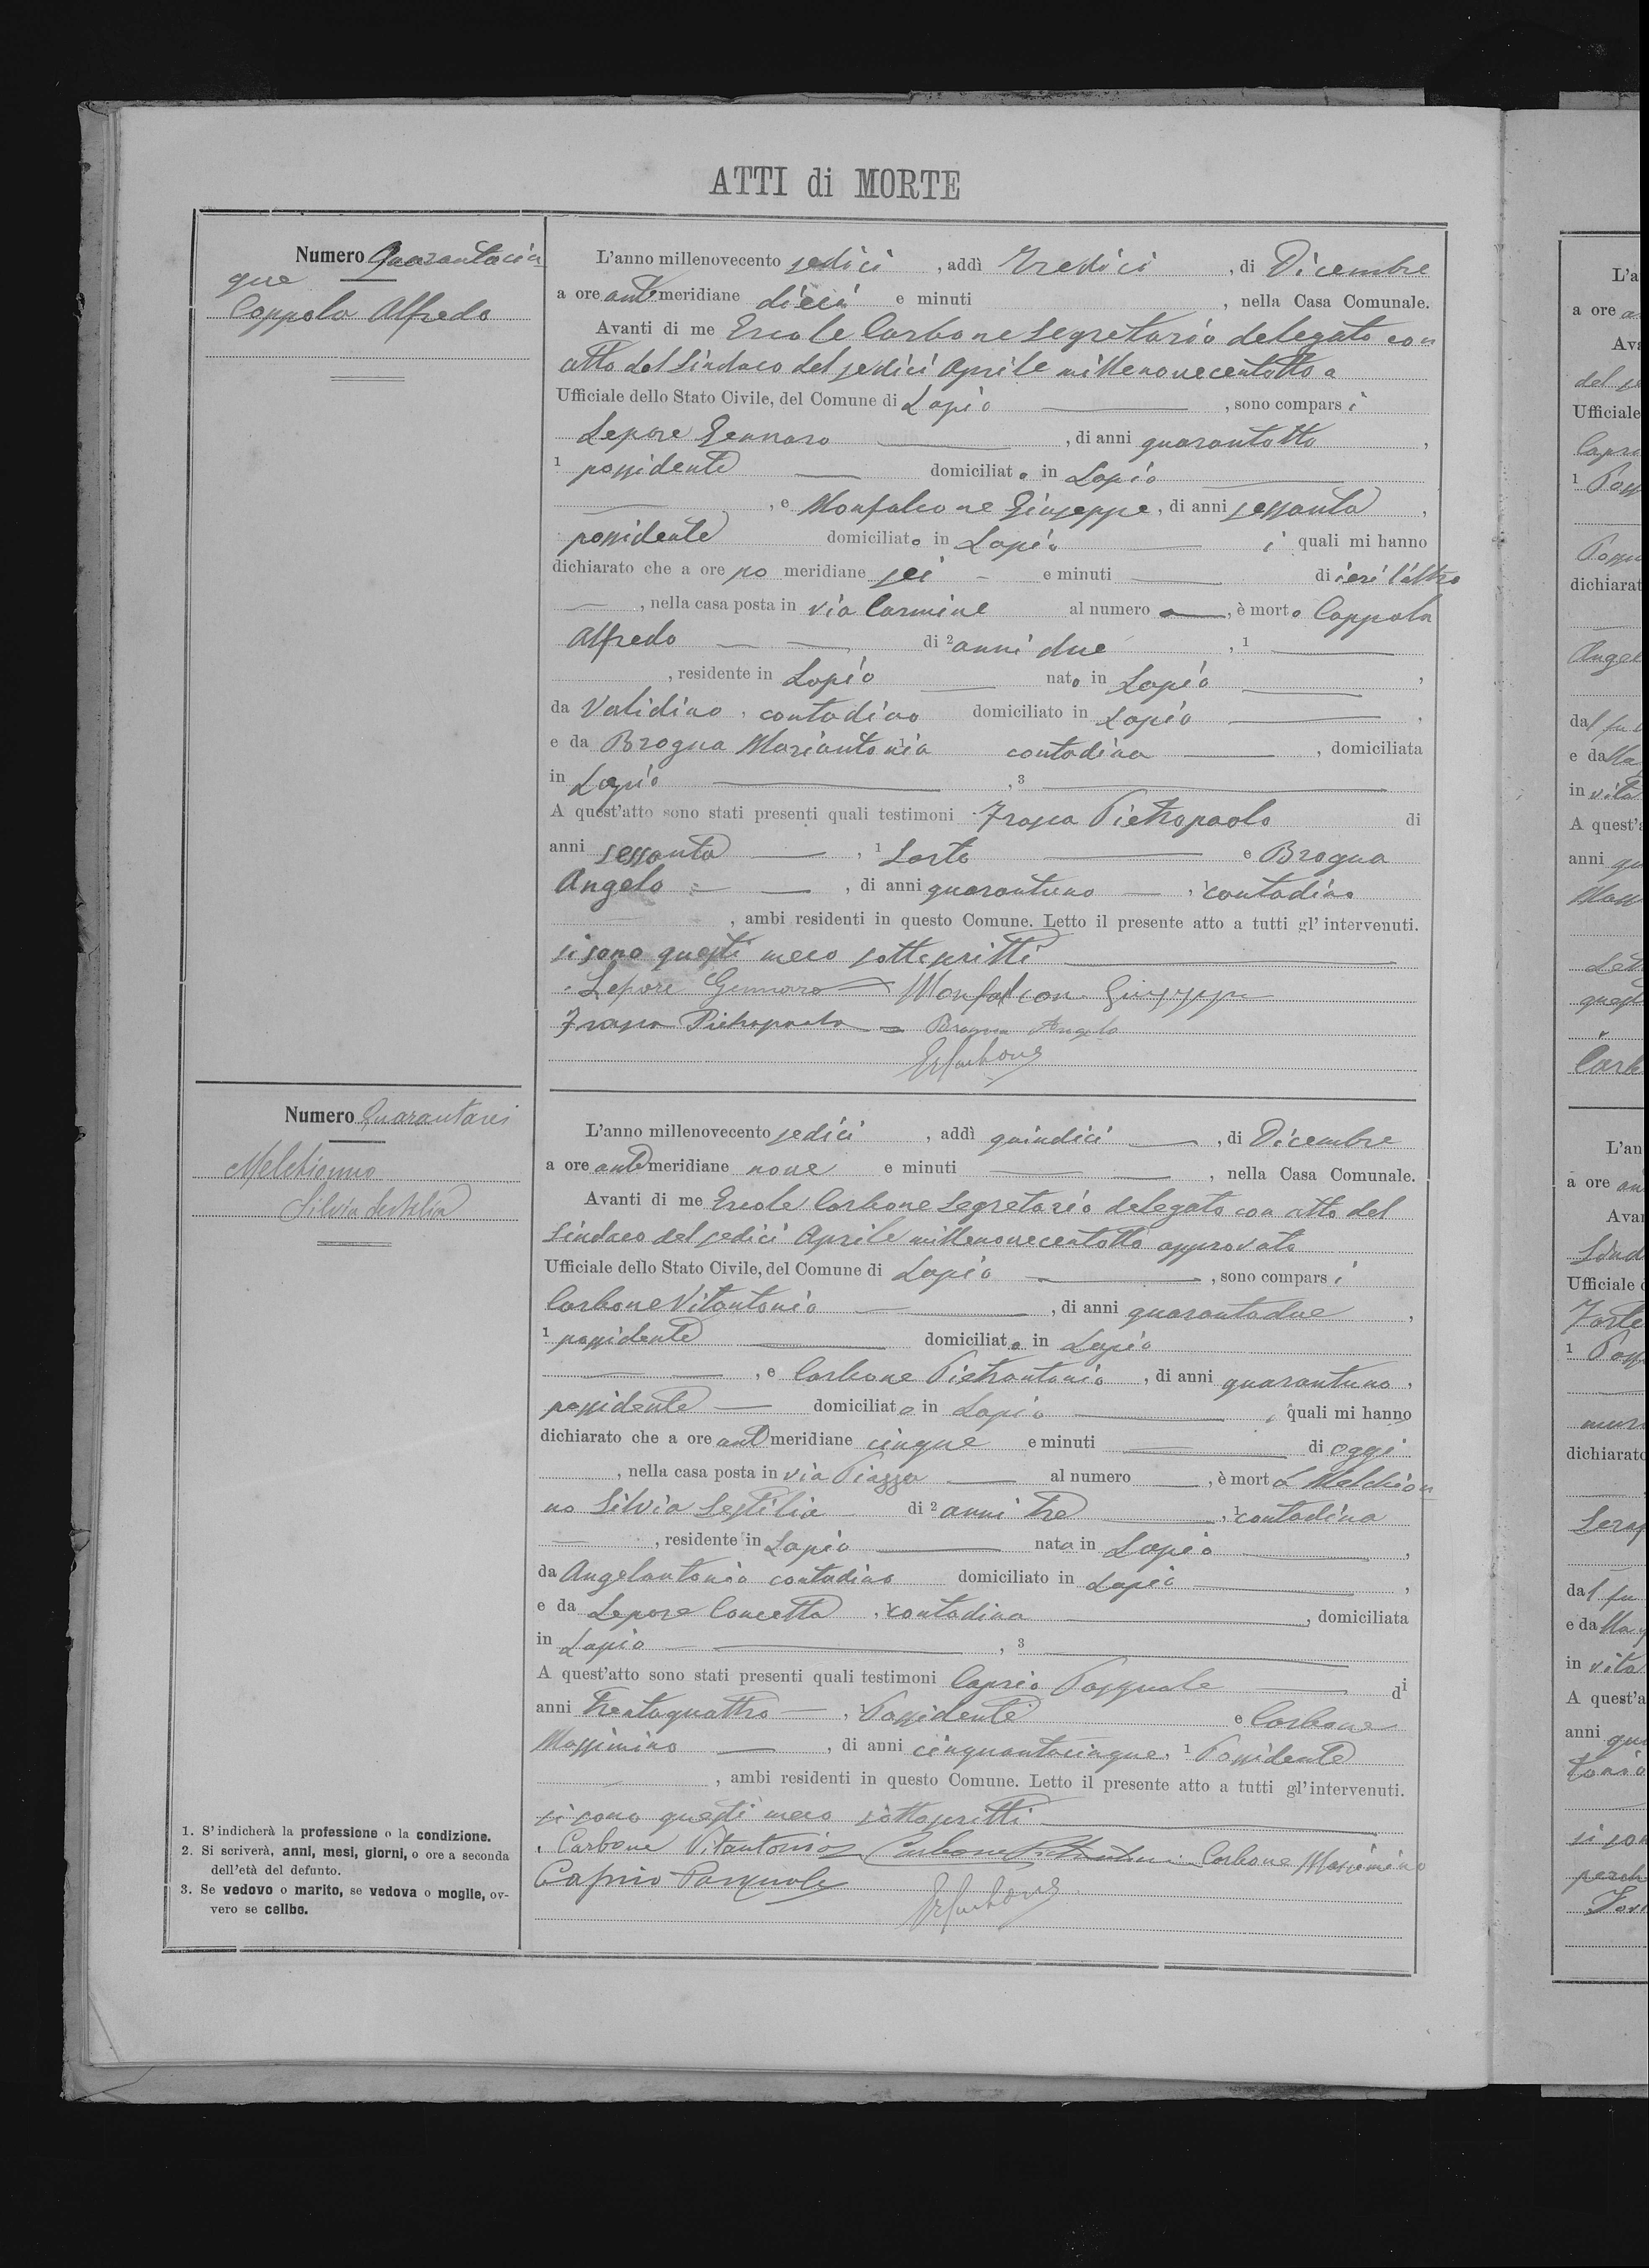 ATTI di MORTE
Numero Quarantacin
que
Coppola Alfredo
L'anno millenovecento sedici, addì Tredici, di Dicembre
a ore antemeridiane dieci e minuti, nella Casa Comunale.
Avanti di me Ercole Carbone Segretario delegato con
atto del Sindaco del sedici Aprile millenovecentotto a
Ufficiale dello Stato Civile, del Comune di Lapio, sono comparsi
Lepore Gennaro, di anni quarantotto,
1 possidente domiciliato in Lapio
, e Monfalcone Giuseppe, di anni sessanta,
possidente domiciliato in Lapio i quali mi hanno
dichiarato che a ore po meridiane sei e minuti di ieri l'altro
, nella casa posta in via Carmine al numero, è morto Coppola
Alfredo di 2 anni due, 1
, residente in Lapio nato in Lapio,
da Validino, contadino domiciliato in Lapio,
e da Brogna Mariantonia contadina, domiciliata
in Lapio, 3
A quest'atto sono stati presenti quali testimoni Frasca Pietropaolo di
anni sessanta, 1 Sarto e Brogna
Angelo, di anni quarantuno, 1 contadino
, ambi residenti in questo Comune. Letto il presente atto a tutti gl'intervenuti.
si sono questi meco sottoscritti
Lepore Gennaro Monfalcone Giuseppe
Frasca Pietropaolo Brogna Angelo
ErCarbone
Numero Quarantasei
Melchionno
Silvia Sestilia
L'anno millenovecento sedici, addì quindici, di Dicembre
a ore antemeridiane nove e minuti, nella Casa Comunale.
Avanti di me Ercole Carbone Segretario delegato con atto del
Sindaco del sedici Aprile millenovecentotto approvato
Ufficiale dello Stato Civile, del Comune di Lapio, sono comparsi
Carbone Vitantonio, di anni quarantadue,
1 possidente domiciliato in Lapio
, e Carbone Pietrantonio, di anni quarantuno,
possidente domiciliato in Lapio i quali mi hanno
dichiarato che a ore antmeridiane cinque e minuti di oggi
, nella casa posta in via Piazza al numero, è morta Melchion
no Silvia Sestilia di 2 anni tre, 1 contadina
, residente in Lapio nata in Lapio,
da Angelantonio contadino domiciliato in Lapio,
e da Lepore Concetta, contadina, domiciliata
in Lapio, 3
A quest'atto sono stati presenti quali testimoni Caprio Pasquale di
anni trentaquattro, 1 Possidente e Carbone
Massimino, di anni cinquantacinque, 1 Possidente
, ambi residenti in questo Comune. Letto il presente atto a tutti gl'intervenuti.
si sono questi meco sottoscritti
Carbone Vitantonio Carbone Pietrantonio Carbone Massimino
Caprio Pasquale ErCarbone
1. S'indicherà la professione o la condizione.
2. Si scriverà, anni, mesi, giorni, o ore a seconda
dell'età del defunto.
3. Se vedovo o marito, se vedova o moglie, ov-
vero se celibe.
L'a
a ore
Ava
Ufficiale
1
dichiarat
Angel
e da
in vita
A quest'a
anni
L'an
a ore an
Avan
Sind
Ufficiale
1
dichiarato
e da
in vita
A quest'a
anni